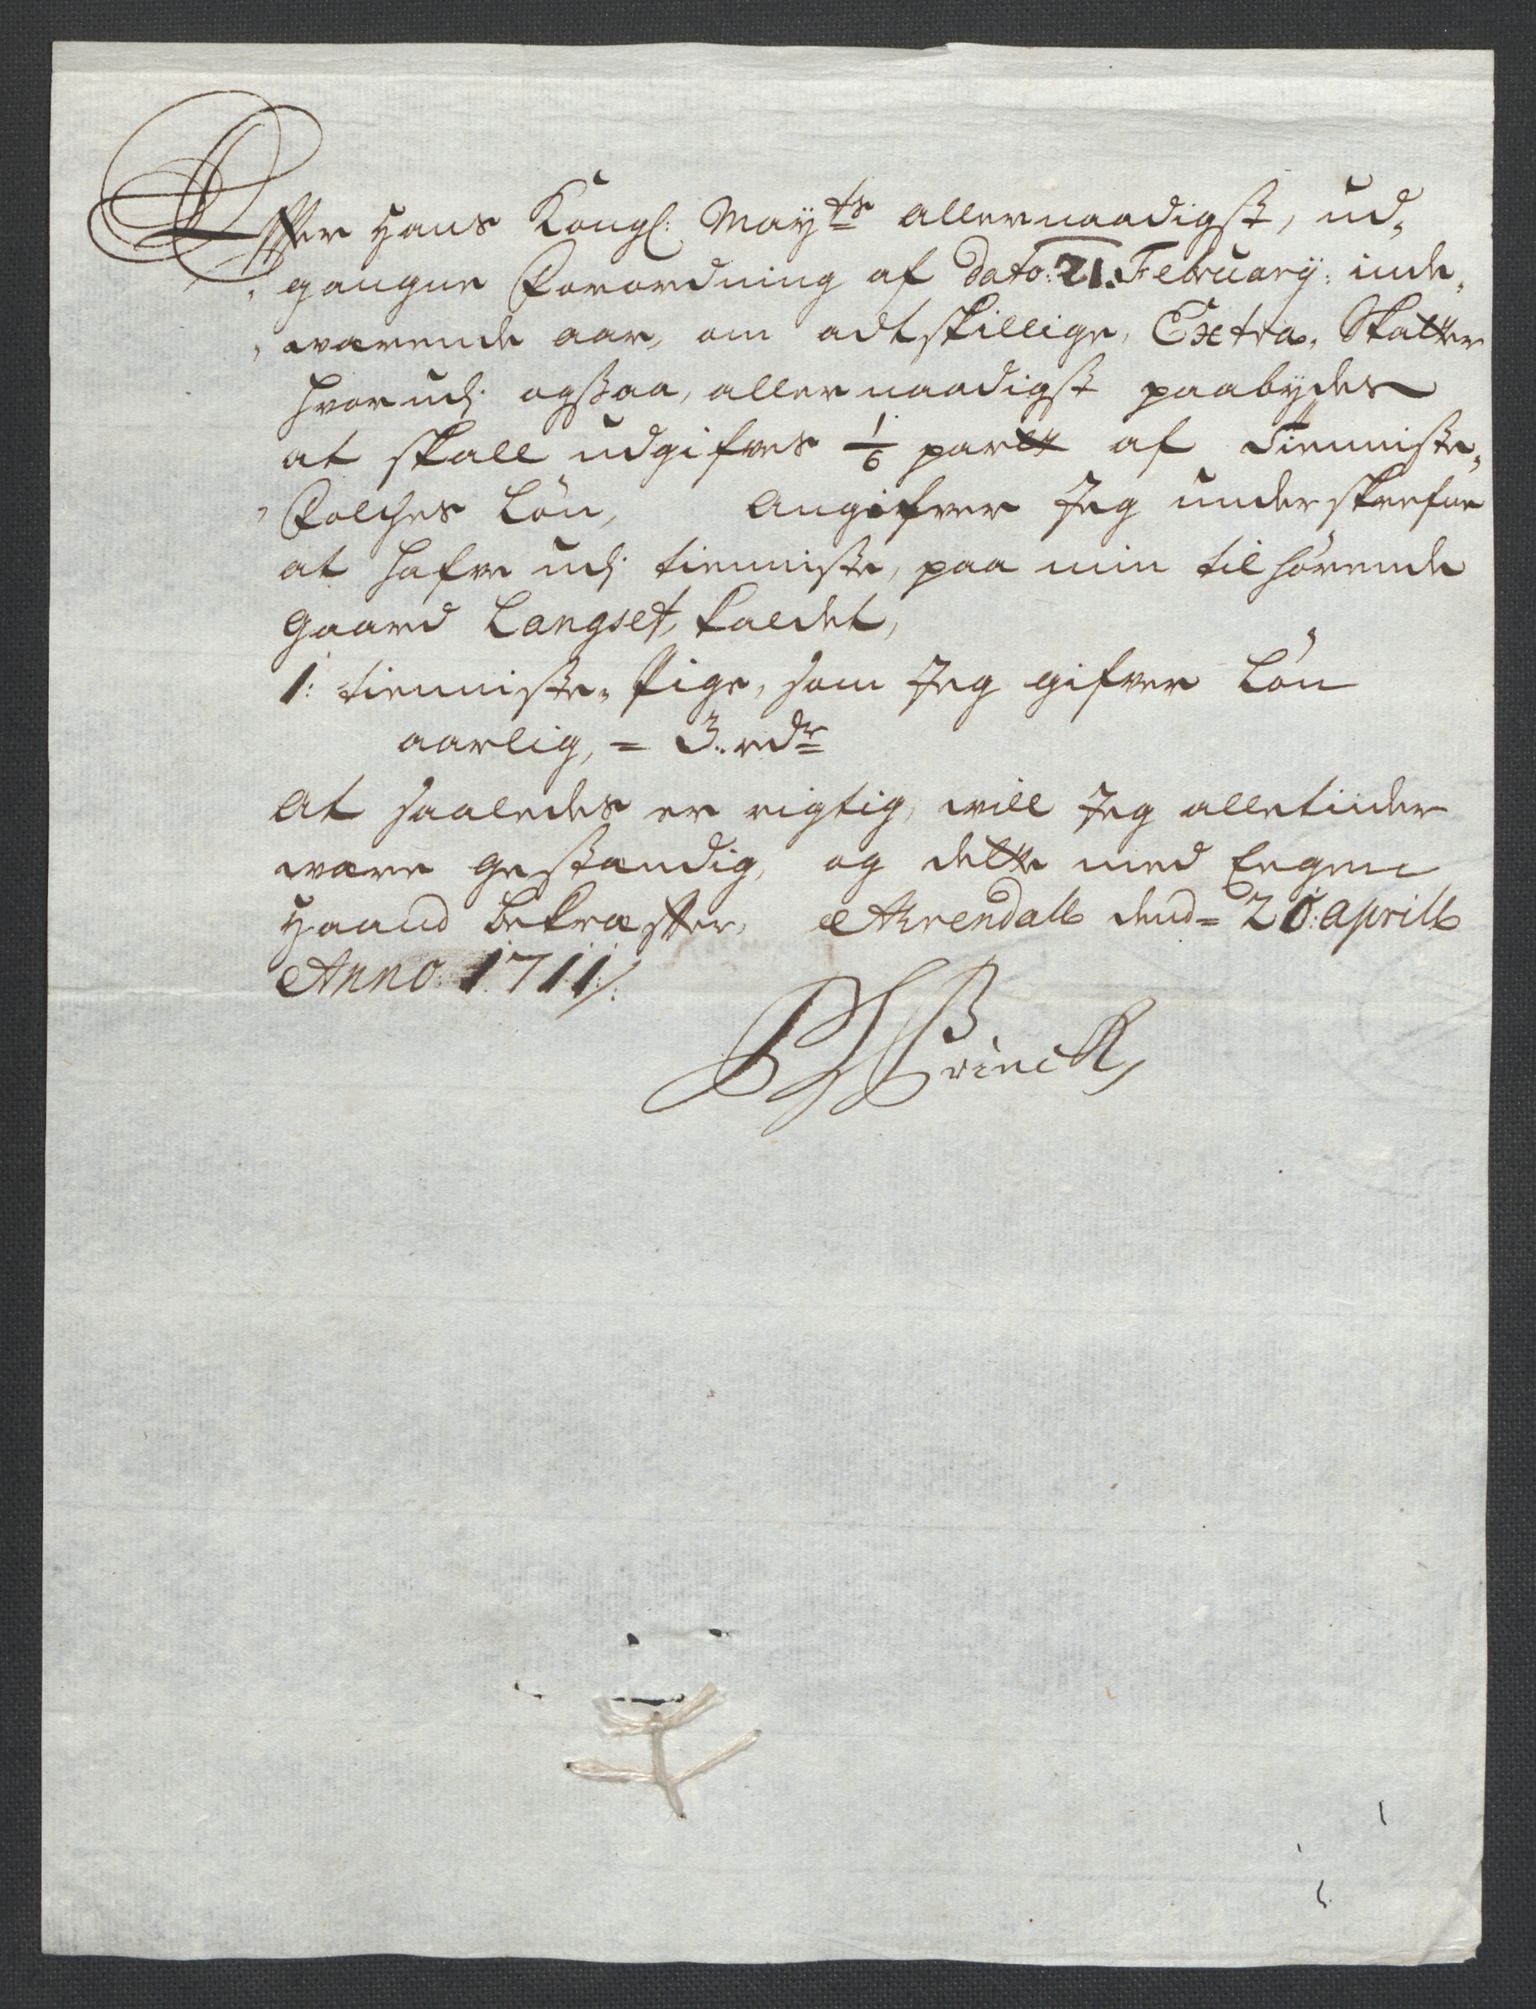 Effter Hans Kongl: Mayts allernaadigst, ud-
gangne Forordning af Dato: 21. February: inde-
wærende aar, om adtskillige, Extra, Skatter
hvorudj ogsaa, allernaadigst paabydes
at skall udgifves 1/6 partt af Tienniste-
Folches Løn, Angifver Jeg underskrefne
at hafve udj tienniste, paa min tilhørende
Gaard Langset, kaldet,
1: tienniste-Pige, som Jeg gifver Løn
aarlig, = 3. rdr
At saaledes er rigtig, will Jeg alletiider
være gestændig, og dette med Eegen
Haand bekræffter, Arendall dend= 20: aprill
Anno: 1711/:
Brinck,